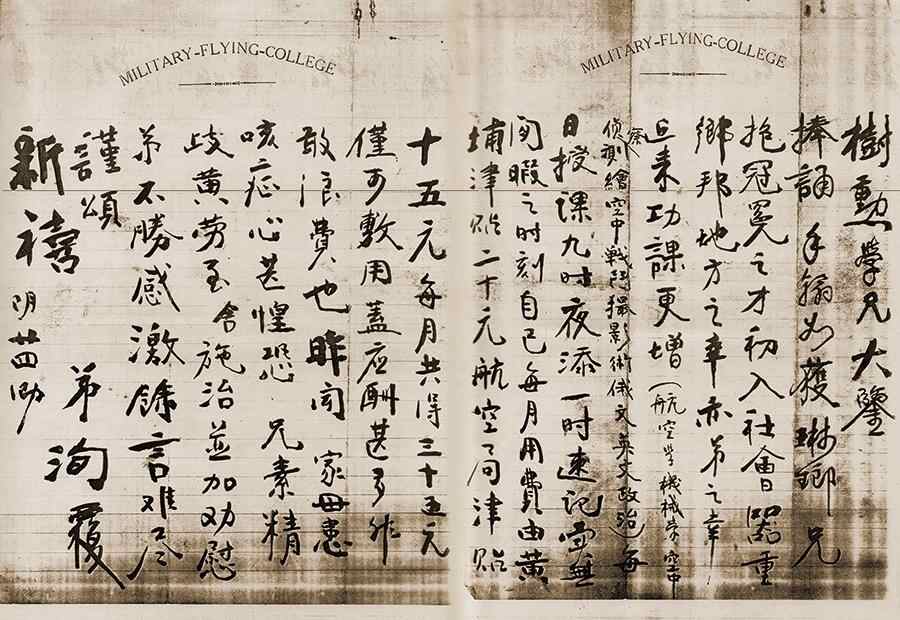 MILITARY-FLYING-COLLEGE
樹勲學兄大鑒
捧誦手翰如獲琳瑯兄
抱冠冕之才初入社會器重
鄉邦地方之幸亦弟之幸
近来功課更增(航空学機械学空中
偵察測繪空中戰鬥撮影術俄文英文政治)每
日授課九时夜添一时速记实無
閒暇之时刻自己每月用費由黄
埔津贴二十元航空局津贴
MILITARY-FLYING-COLLEGE
十五元每月共得三十五元
僅可敷用蓋应酬甚多非
敢浪費也昨闻家母患
咳症心甚惶恐兄素精
歧黄劳至舍施治並加劝慰
弟不勝感激餘言难尽
謹頌
弟洵覆
新禧
阴廿四